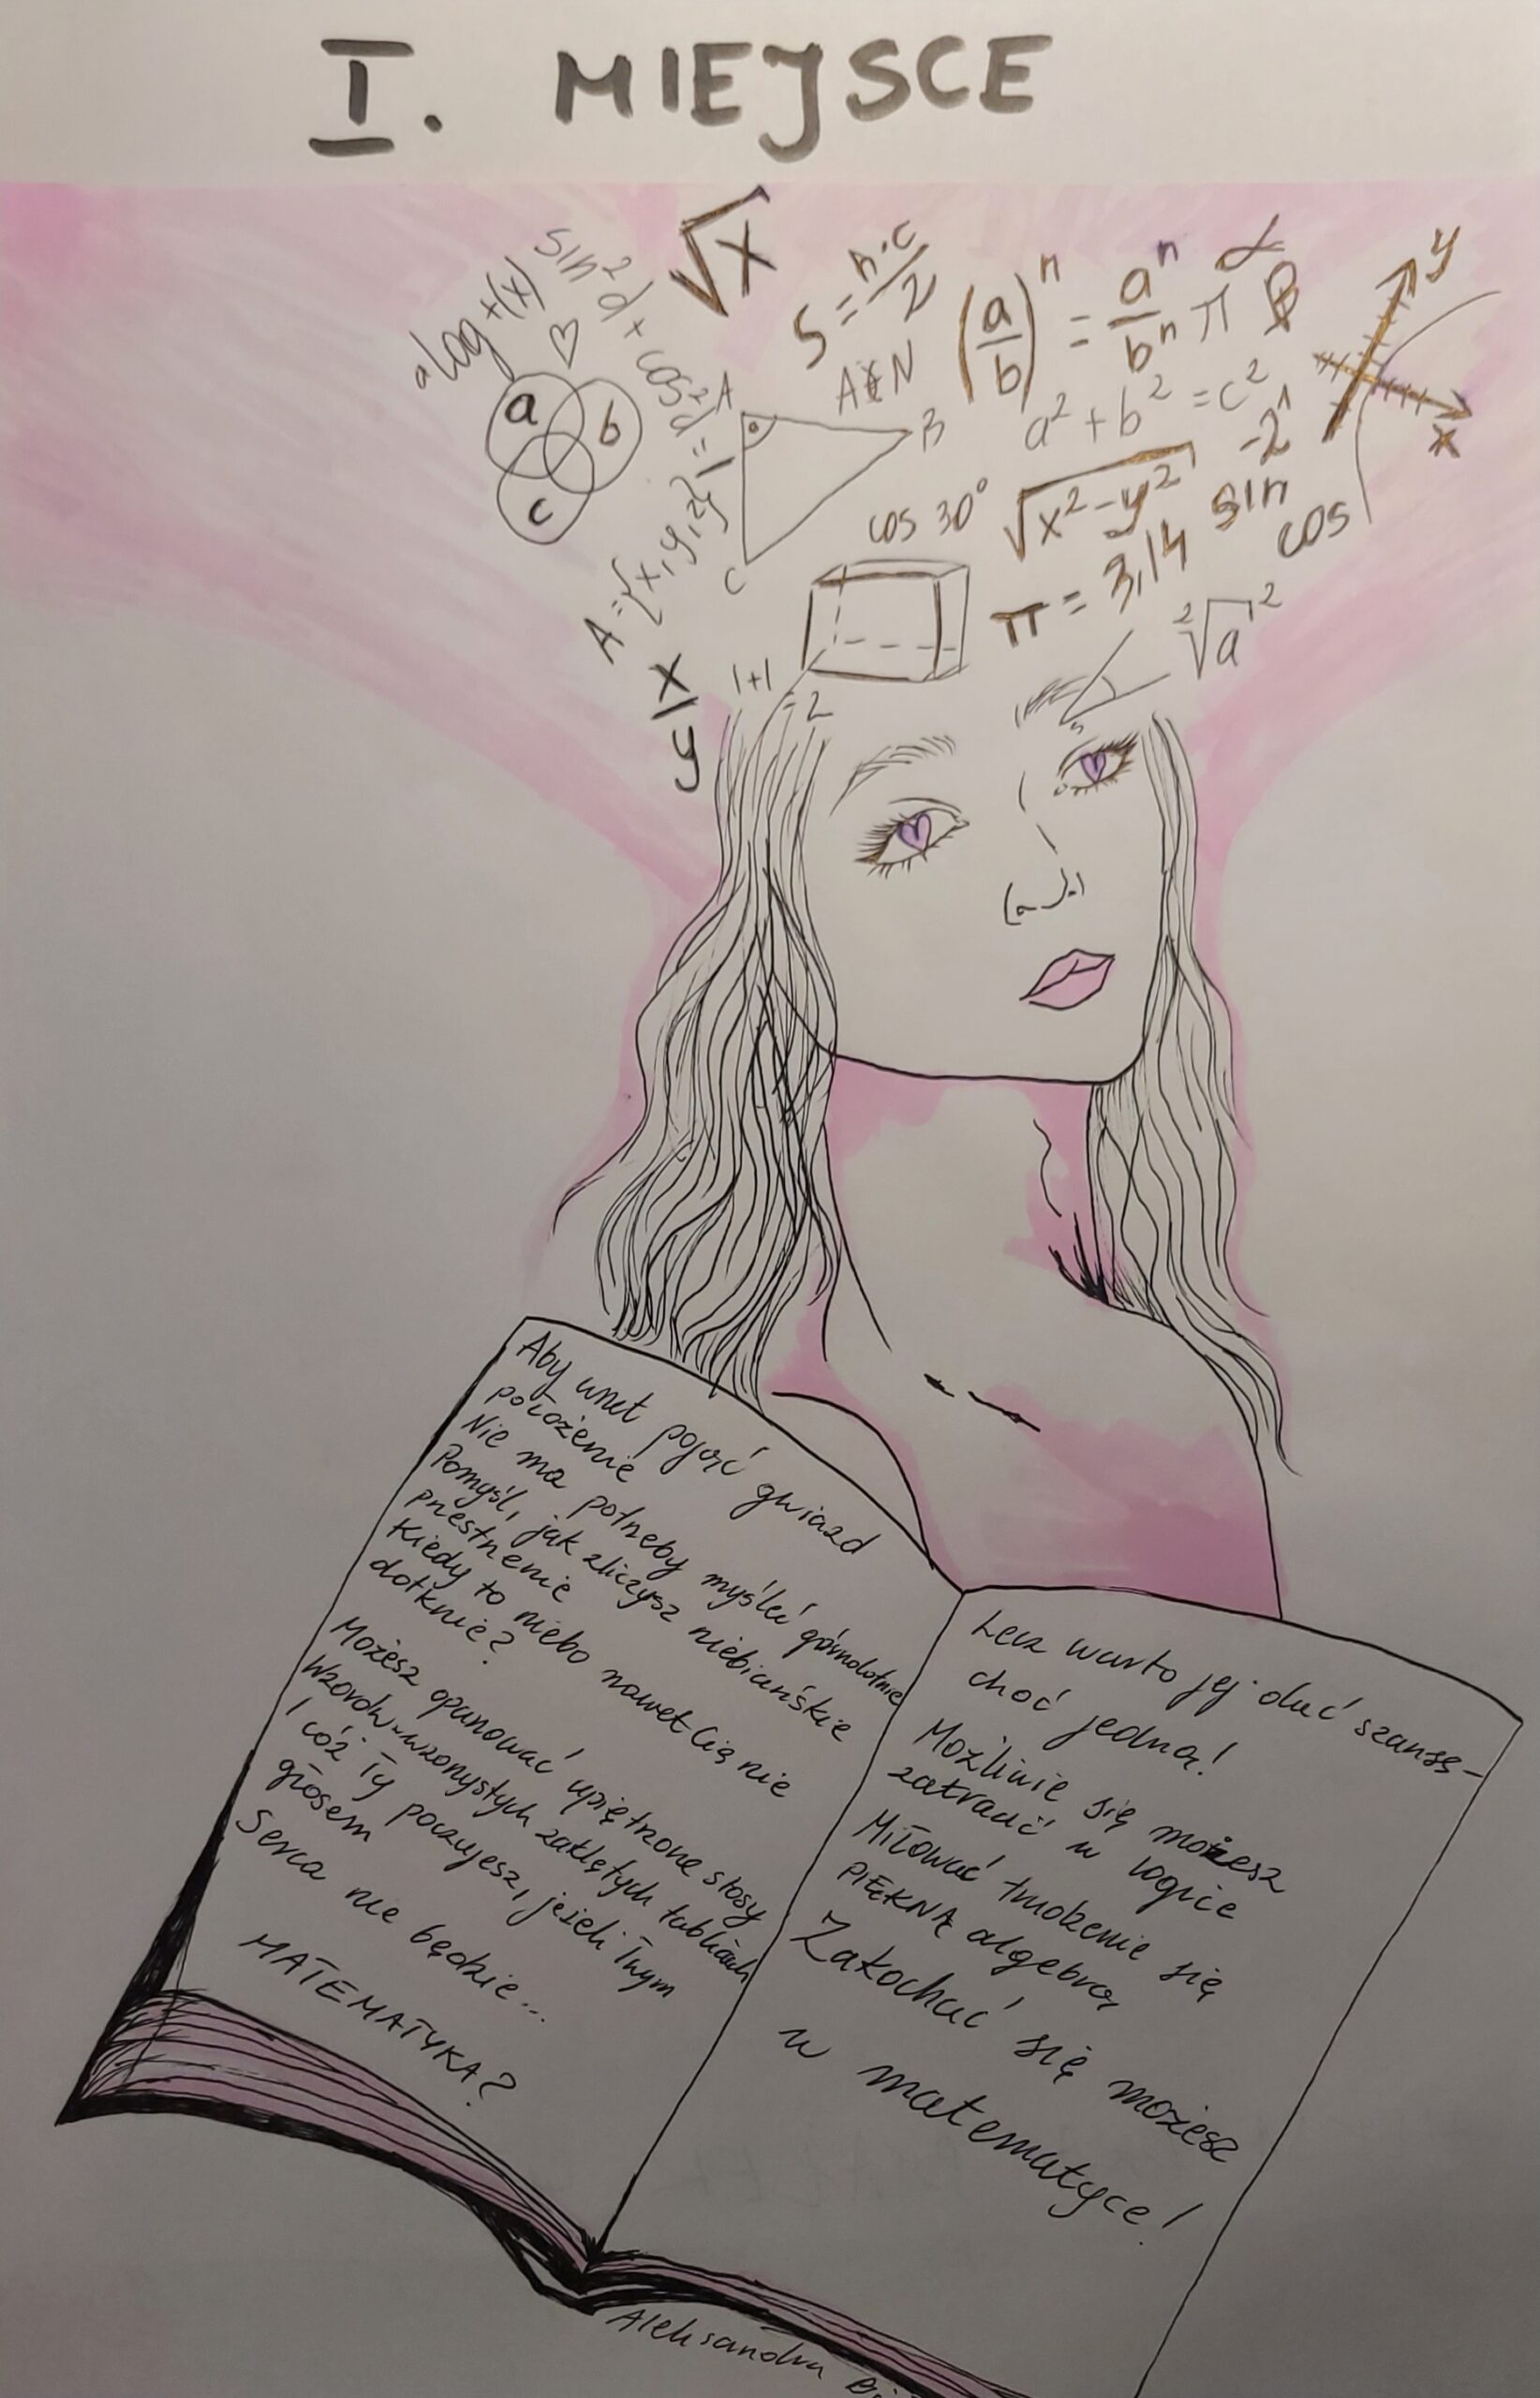 I. MIEJSCE
√x
sin²α + cos²α = 1
a log f(x)
S = h·c/2
(a/b)ⁿ = aⁿ/bⁿ
π
α
β
y
x
a
b
c
A
B
C
A ∉ N
a² + b² = c²
-2¹
cos 30°
√x² - y²
sin
cos
π = 3,14
A = {x, y, z}
²√a²
x/y
1+1
= 2
Aby wnet pojąć gwiazd
położenie
Nie ma potrzeby myśleć górnolotnie
Pomyśl, jak zliczysz niebiańskie
przestrzenie
Kiedy to niebo nawet Cię nie
dotknie?
Możesz opanować upiętrzone stosy
Wzorów wzorzystych zaklętych tablicach
I cóż Ty poczujesz, jeżeli Twym
głosem
Serca nie będzie...
MATEMATYKA?
Lecz warto jej dać szansę-
choć jedną!
Możliwie się możesz
zatracić w logice
Miłować mnożenie się
PIĘKNĄ algebrą
Zakochać się możesz
w matematyce!
Aleksandra